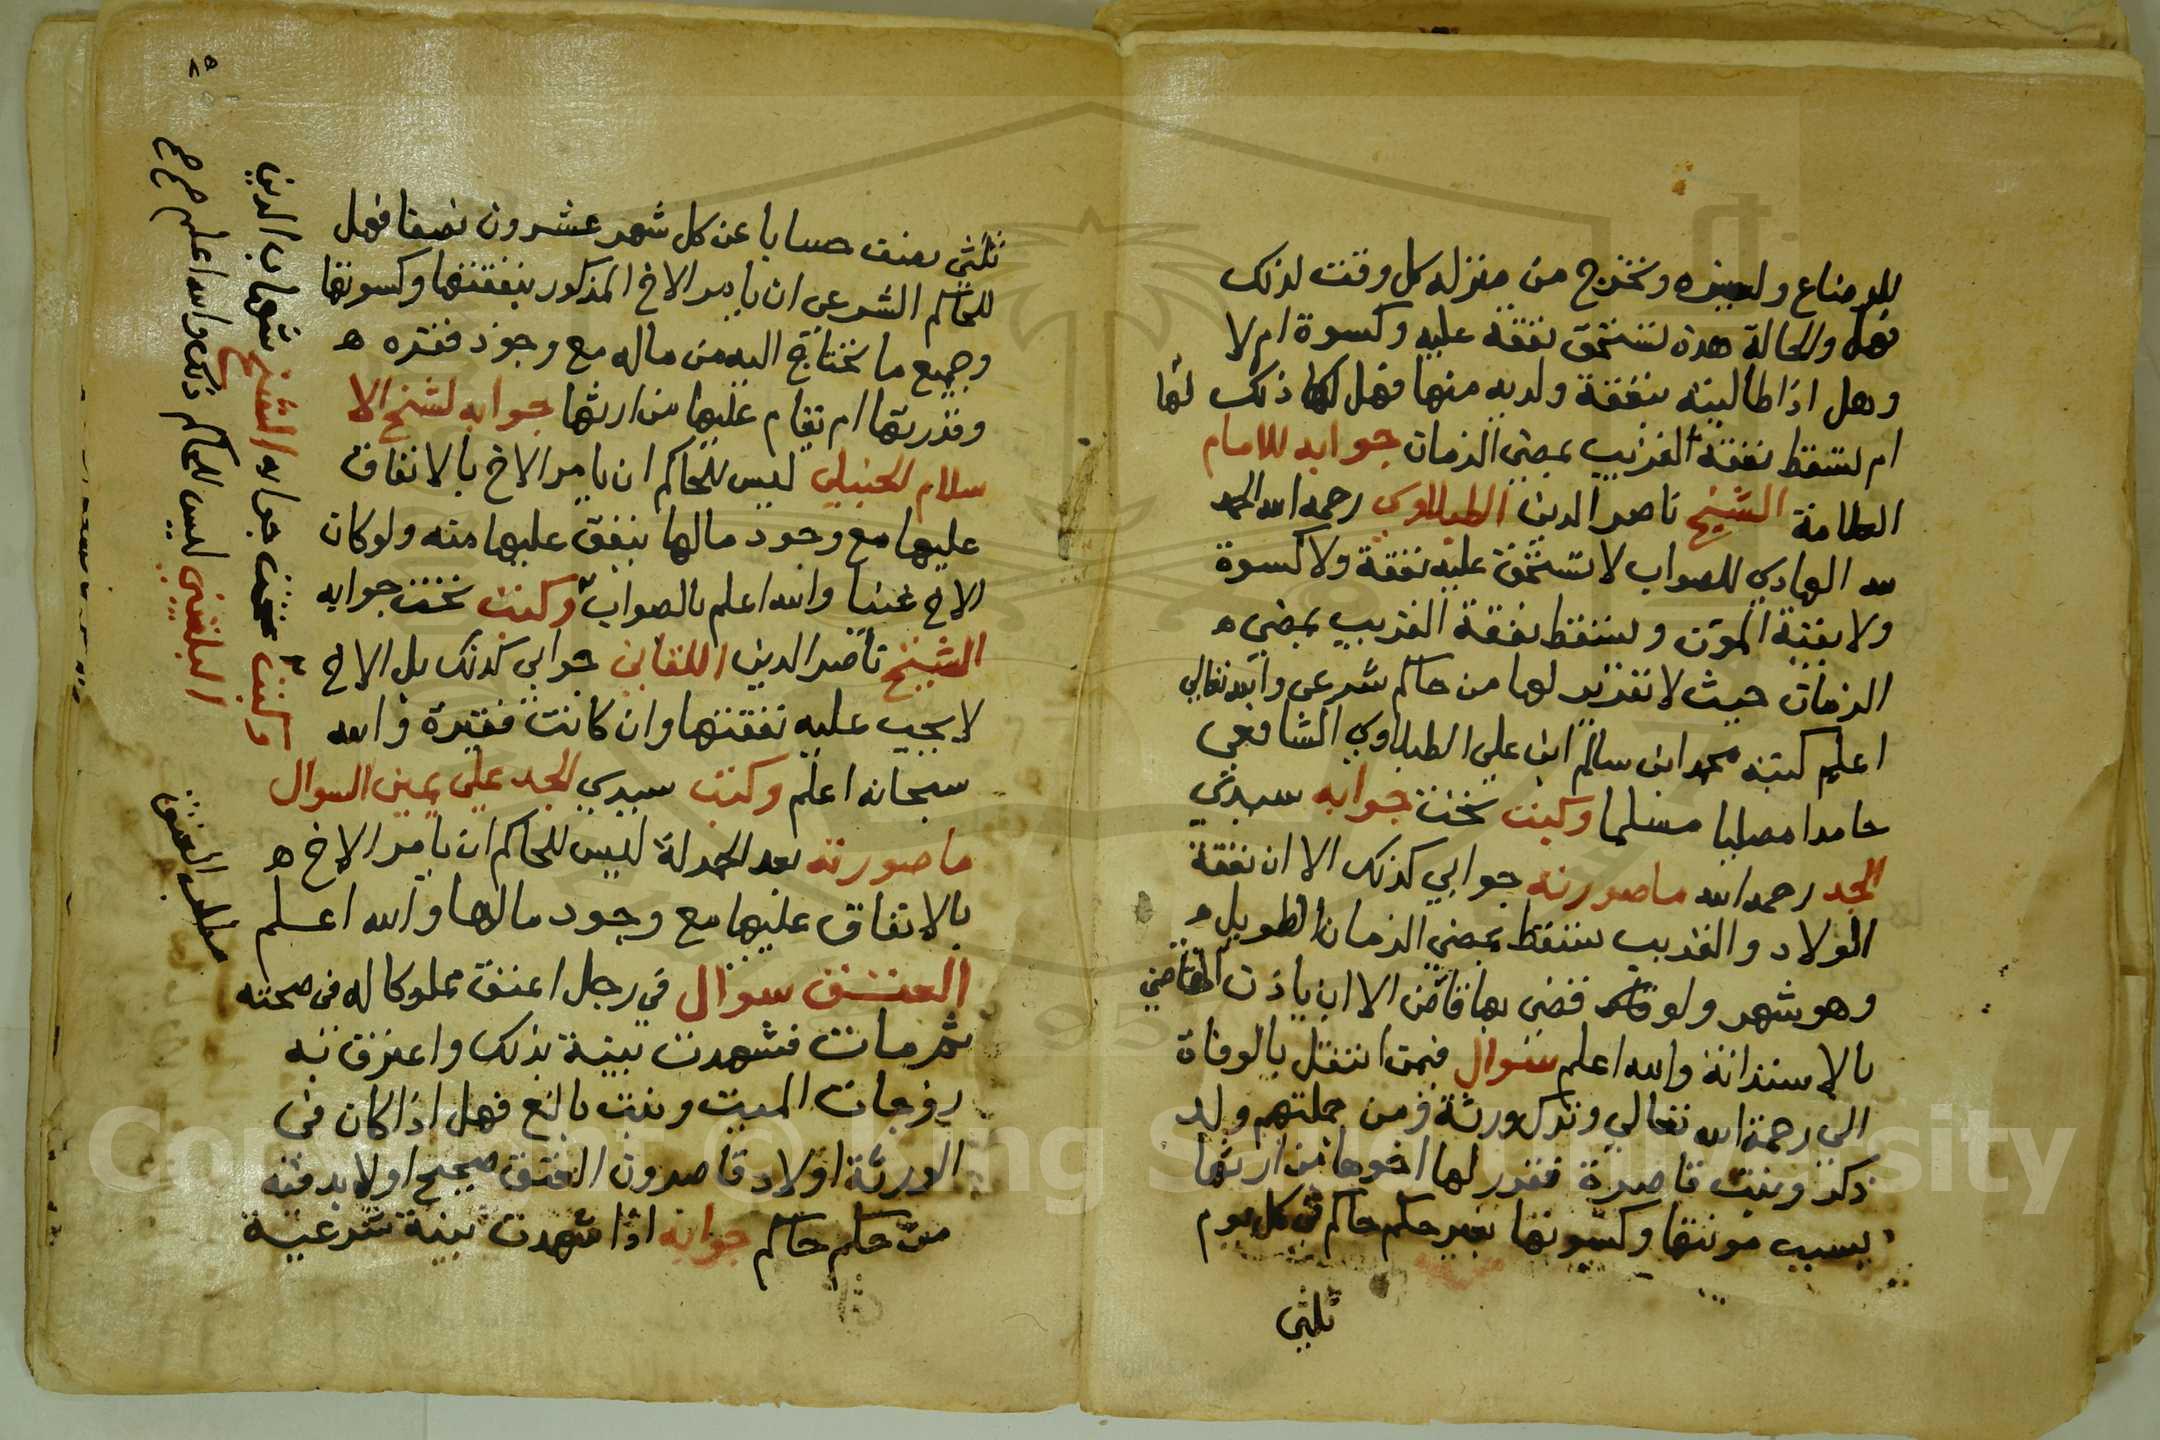 للرضاع ولغيره وتخرج من منزله كل وقت لذلك
فهل والحالة هذه تستحق نفقة عليه وكسوة ام لا
وهل اذا طالبته بنفقة ولديه منها فهل لها ذلك لها
ام تسقط نفقة القريب بمضي الزمان جوابه للامام
العلامة الشيخ ناصر الدين الطبلاوي رحمه الله الحمد
لله الهادي للصواب لا تستحق عليه نفقة ولا كسوة
ولا بقية المؤن وتسقط نفقة القريب بمضي ه
الزمان حيث لا تقرير لها من حاكم شرعي والله تعالي
اعلم كتبه محمد ابن سالم ابن علي الطبلاوي الشافعي
حامدا مصليا مسلما وكتب تحت جوابه سيدي
الجد رحمه الله ما صورته جوابي كذلك الا ان نفقة
الولاد والقريب تسقط بمضي الزمان الطويل ه
وهو شهر ولو قضي بها قاض الا ان ياذن القاضي
بالاستدانة والله اعلم سوال فيمن انتقل بالوفاة
الي رحمة الله تعالي وترك ورثة ومن جملتهم ولد
ذكر وبنت قاصرة فقرر لها اخوها من ارثها
بسبب مونتها وكسوتها بغير حكم حاكم في كل يوم
ثلثي
ثلثي نصف حسابا عن كل شهر عشرون نصفا فهل
للحاكم الشرعي ان يامر الاخ المذكور بنفقتها وكسوتها
وجميع ما تحتاج اليه من ماله مع وجود فقره ه
وقدرتها ام تقام عليها من ارثها جوابه لشيخ الا
سلام الحنبلي ليس للحاكم ان يامر الاخ بالانفاق
عليها مع وجود مالها ينفق عليها منه ولو كان
الاخ غنيا والله اعلم بالصواب وكتب تحت جوابه
الشيخ ناصر الدين اللقاني جوابي كذلك بل الاخ
لا يجب عليه نفقتها وان كانت فقيرة والله
سبحانه اعلم وكتب سيدي الجد علي يمين السوال
ما صورته بعد الحمدلة ليس للحاكم ان يامر الاخ ه
بالانفاق عليها مع وجود مالها والله اعلم
العتق سوال في رجل اعتق مملوكا له في صحته
ثم مات فشهدت بينة بذلك واعترفت به
زوجات الميت وبنت بالغ فهل اذا كان في
الورثة اولاد قاصرون العتق صحيح او لا بد فيه
من حكم حاكم جوابه اذا شهدت بينة شرعية
وكتب تحت جوابه الشيخ شهاب الدين
البلقيني ليس للحاكم ذلك والله اعلم
مطلب العتق